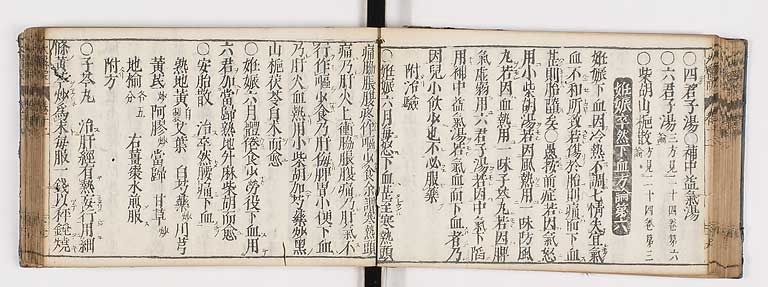 ○四君子湯 ○補中益氣湯
○六君子湯 三方見二十四卷第六
○柴胡山梔散 方見二十四卷第三
妊娠卒然下血方論第八
妊娠下血因冷熱不調七情失宜氣
血不和所致若傷於胎則痛而下血
甚則胎墮矣○愚按前症若因氣怒
用小柴胡湯若因風熱用一味防風
丸若因血熱用一味子芩丸若因脾
氣虛弱用六君子湯若因中氣下陷
用補中益氣湯若氣血而下血者乃
因兒小飲少也不必服藥
附治驗
○妊娠六月每怒下血甚至寒熱頭
痛脇脹腹疼作嘔少食余謂寒熱頭
痛乃肝火上衝脇脹腹痛乃肝氣不
行作嘔少食乃肝侮脾胃小便下血
乃肝火血熱用小柴胡加芍藥炒黑
山梔茯苓白朮而愈
○妊娠六月體倦食少勞役下血用
六君加當歸熟地升麻柴胡而愈
○安胎散 治卒然腰痛下血
熟地黃 艾葉 白芍藥 川芎
黃芪炒 阿膠炒 當歸 甘草炒
地楡 各五分 右薑棗水煎服
附方
○子芩丸 治肝經有熱妄行用細
條黃芩炒爲末每服一錢以秤錘燒